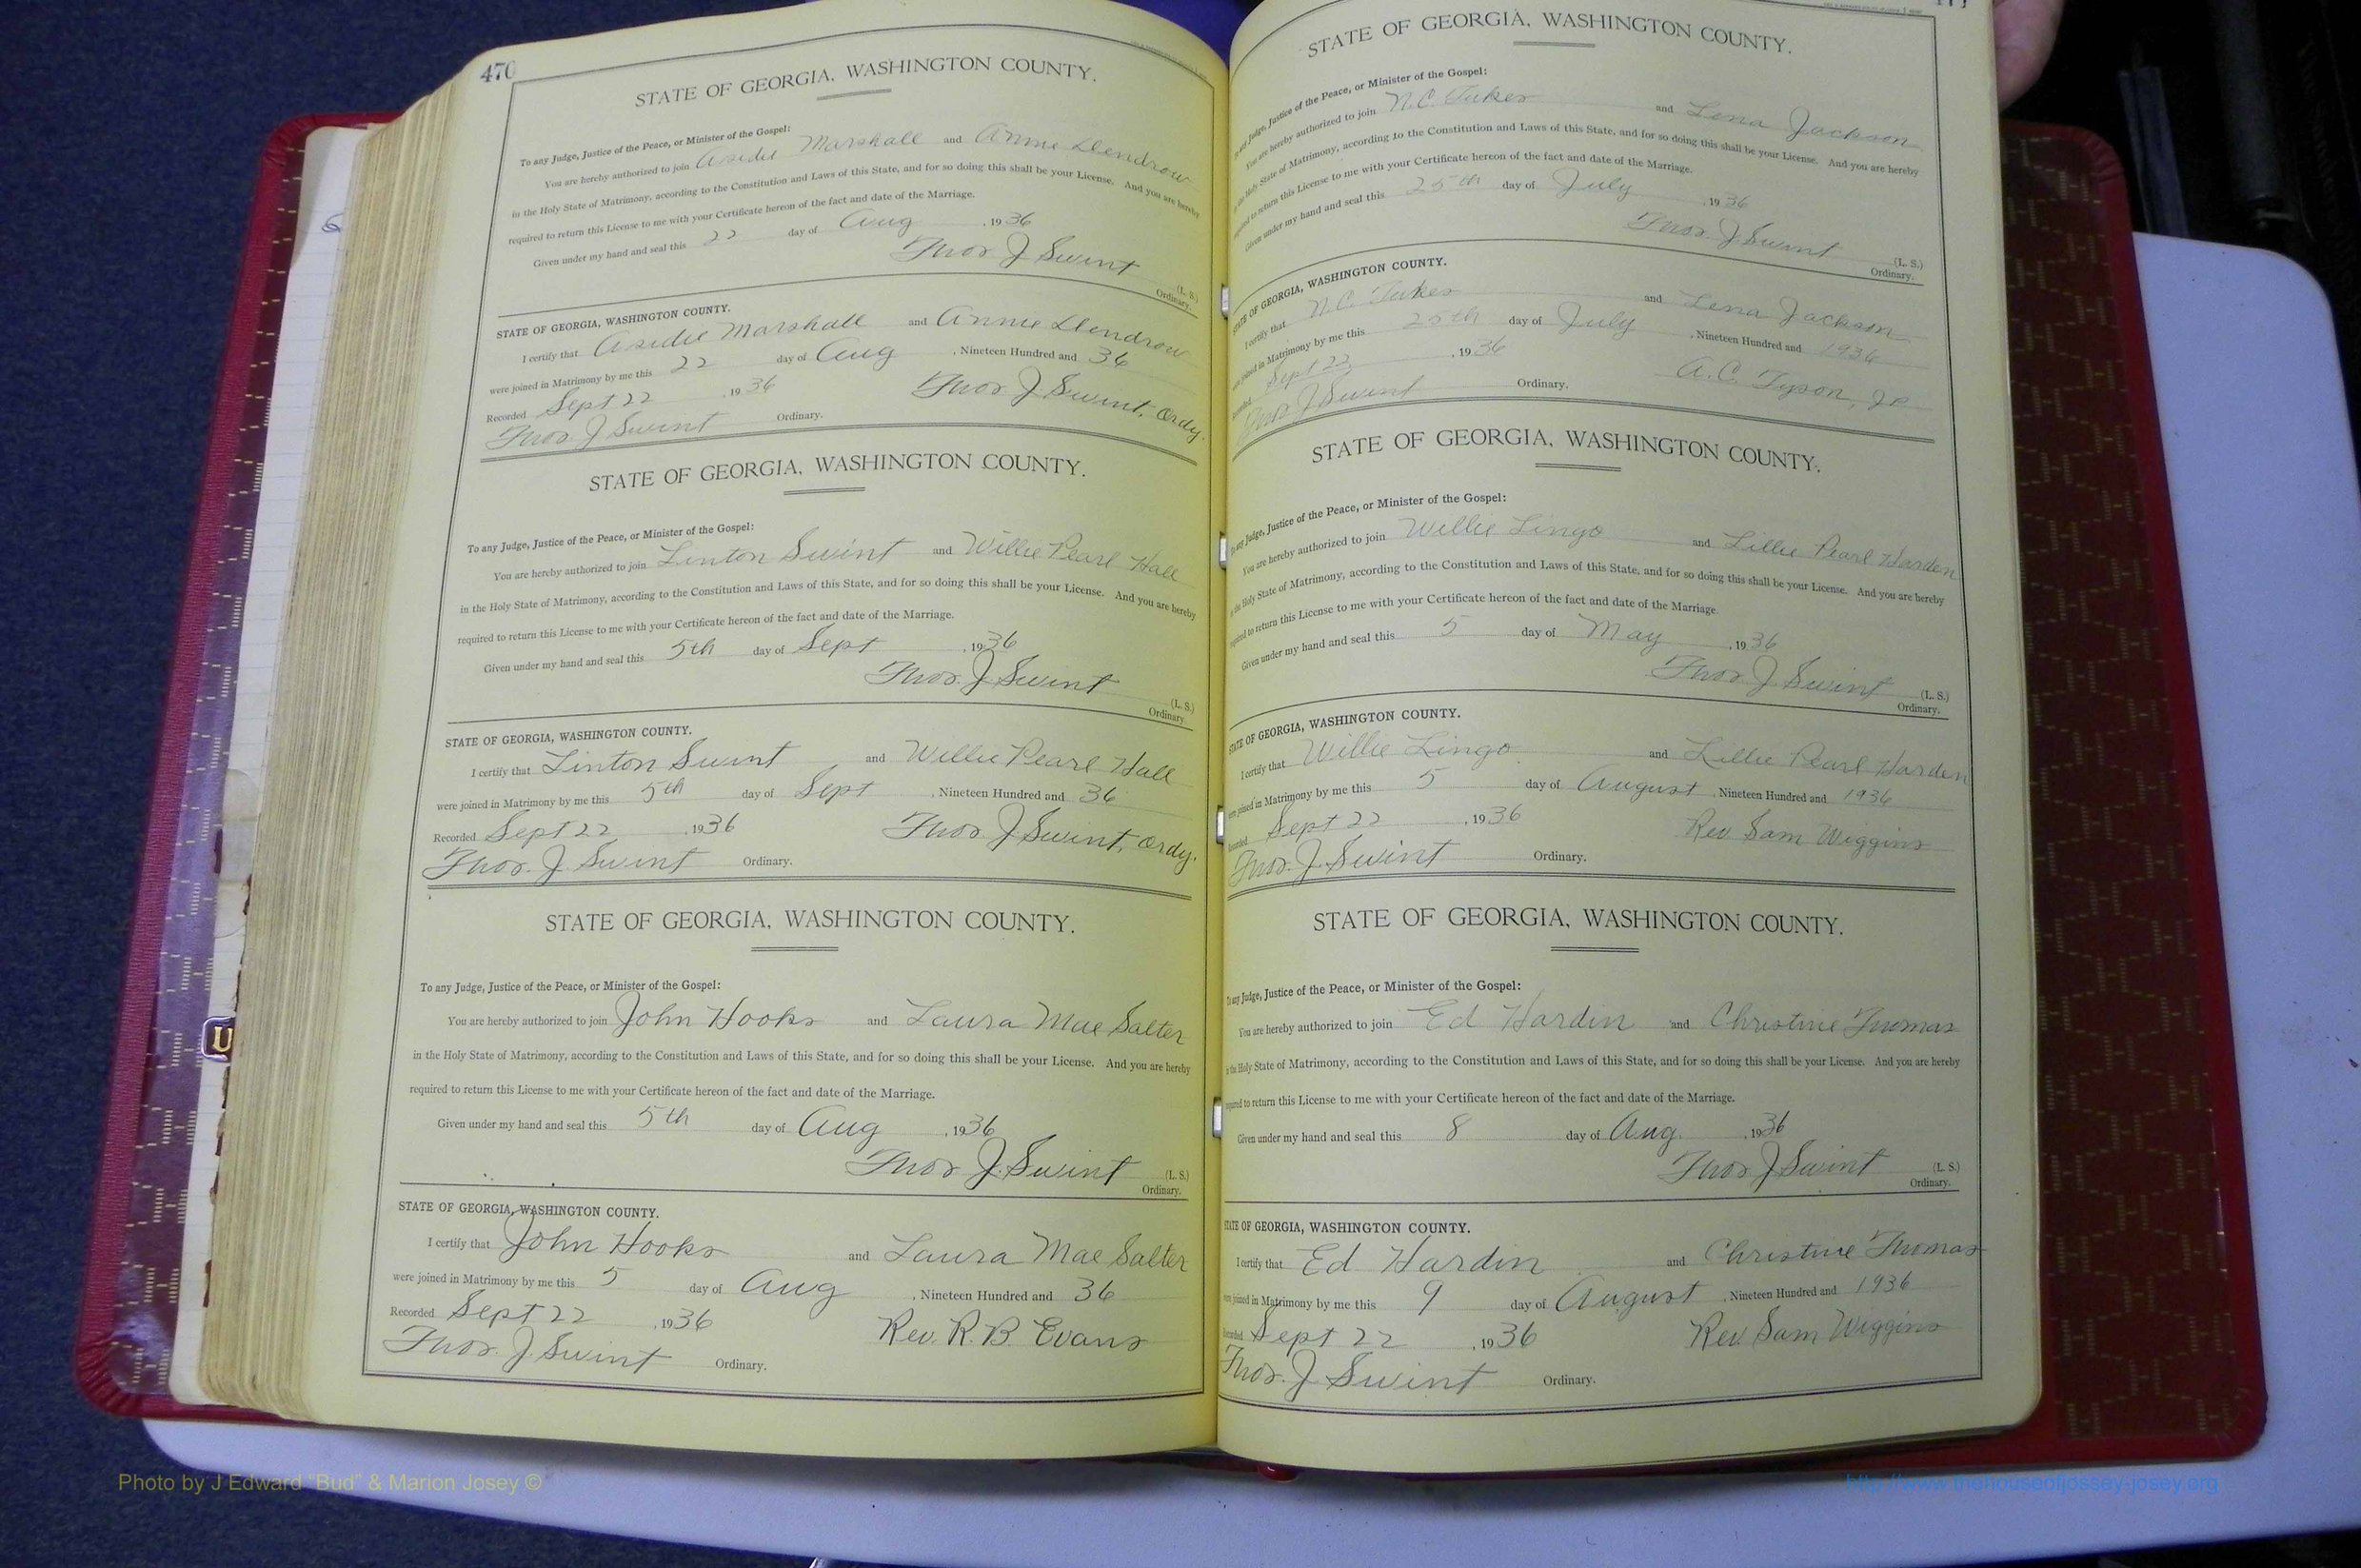 470
STATE OF GEORGIA, WASHINGTON COUNTY.
To any Judge, Justice of the Peace, or Minister of the Gospel:
You are hereby authorized to join Asidie Marshall and Annie Dendrow
in the Holy State of Matrimony, according to the Constitution and Laws of this State, and for so doing this shall be your License. And you are hereby
required to return this License to me with your Certificate hereon of the fact and date of the Marriage.
Given under my hand and seal this 22 day of Aug , 1936
Thos J Swint (L. S.)
Ordinary.
STATE OF GEORGIA, WASHINGTON COUNTY.
I certify that Asidie Marshall and Annie Dendrow
were joined in Matrimony by me this 22 day of Aug , Nineteen Hundred and 36
Recorded Sept 22 , 1936 Thos J Swint, Ordy.
Thos. J Swint Ordinary.
STATE OF GEORGIA, WASHINGTON COUNTY.
To any Judge, Justice of the Peace, or Minister of the Gospel:
You are hereby authorized to join Linton Swint and Willie Pearl Hall
in the Holy State of Matrimony, according to the Constitution and Laws of this State, and for so doing this shall be your License. And you are hereby
required to return this License to me with your Certificate hereon of the fact and date of the Marriage.
Given under my hand and seal this 5th day of Sept , 1936
Thos. J Swint (L. S.)
Ordinary.
STATE OF GEORGIA, WASHINGTON COUNTY.
I certify that Linton Swint and Willie Pearl Hall
were joined in Matrimony by me this 5th day of Sept , Nineteen Hundred and 36
Recorded Sept 22 , 1936 Thos J Swint, Ordy.
Thos. J. Swint Ordinary.
STATE OF GEORGIA, WASHINGTON COUNTY.
To any Judge, Justice of the Peace, or Minister of the Gospel:
You are hereby authorized to join John Hooks and Laura Mae Salter
in the Holy State of Matrimony, according to the Constitution and Laws of this State, and for so doing this shall be your License. And you are hereby
required to return this License to me with your Certificate hereon of the fact and date of the Marriage.
Given under my hand and seal this 5th day of Aug , 1936
Thos J. Swint (L. S.)
Ordinary.
STATE OF GEORGIA, WASHINGTON COUNTY.
I certify that John Hooks and Laura Mae Salter
were joined in Matrimony by me this 5 day of Aug , Nineteen Hundred and 36
Recorded Sept 22 , 1936 Rev. R. B. Evans
Thos. J. Swint Ordinary.
STATE OF GEORGIA, WASHINGTON COUNTY.
To any Judge, Justice of the Peace, or Minister of the Gospel:
You are hereby authorized to join N.C. Tuker and Lena Jackson
in the Holy State of Matrimony, according to the Constitution and Laws of this State, and for so doing this shall be your License. And you are hereby
required to return this License to me with your Certificate hereon of the fact and date of the Marriage.
Given under my hand and seal this 25th day of July , 1936
Thos. J Swint (L. S.)
Ordinary.
STATE OF GEORGIA, WASHINGTON COUNTY.
I certify that N.C. Tuker and Lena Jackson
were joined in Matrimony by me this 25th day of July , Nineteen Hundred and 1936
Recorded Sept 22 , 1936 A.C. Tyson, JP
Thos J Swint Ordinary.
STATE OF GEORGIA, WASHINGTON COUNTY.
To any Judge, Justice of the Peace, or Minister of the Gospel:
You are hereby authorized to join Willie Lingo and Lillie Pearl Harden
in the Holy State of Matrimony, according to the Constitution and Laws of this State, and for so doing this shall be your License. And you are hereby
required to return this License to me with your Certificate hereon of the fact and date of the Marriage.
Given under my hand and seal this 5 day of May , 1936
Thos J Swint (L. S.)
Ordinary.
STATE OF GEORGIA, WASHINGTON COUNTY.
I certify that Willie Lingo and Lillie Pearl Harden
were joined in Matrimony by me this 5 day of August , Nineteen Hundred and 1936
Recorded Sept 22 , 1936 Rev Sam Wiggins
Thos. J. Swint Ordinary.
STATE OF GEORGIA, WASHINGTON COUNTY.
To any Judge, Justice of the Peace, or Minister of the Gospel:
You are hereby authorized to join Ed Hardin and Christine Thomas
in the Holy State of Matrimony, according to the Constitution and Laws of this State, and for so doing this shall be your License. And you are hereby
required to return this License to me with your Certificate hereon of the fact and date of the Marriage.
Given under my hand and seal this 8 day of Aug. , 1936
Thos J Swint (L. S.)
Ordinary.
STATE OF GEORGIA, WASHINGTON COUNTY.
I certify that Ed Hardin and Christine Thomas
were joined in Matrimony by me this 9 day of August , Nineteen Hundred and 1936
Recorded Sept 22 , 1936 Rev. Sam Wiggins
Thos. J Swint Ordinary.
Photo by J Edward "Bud" & Marion Josey ©
http://www.thehouseofjossey-josey.org